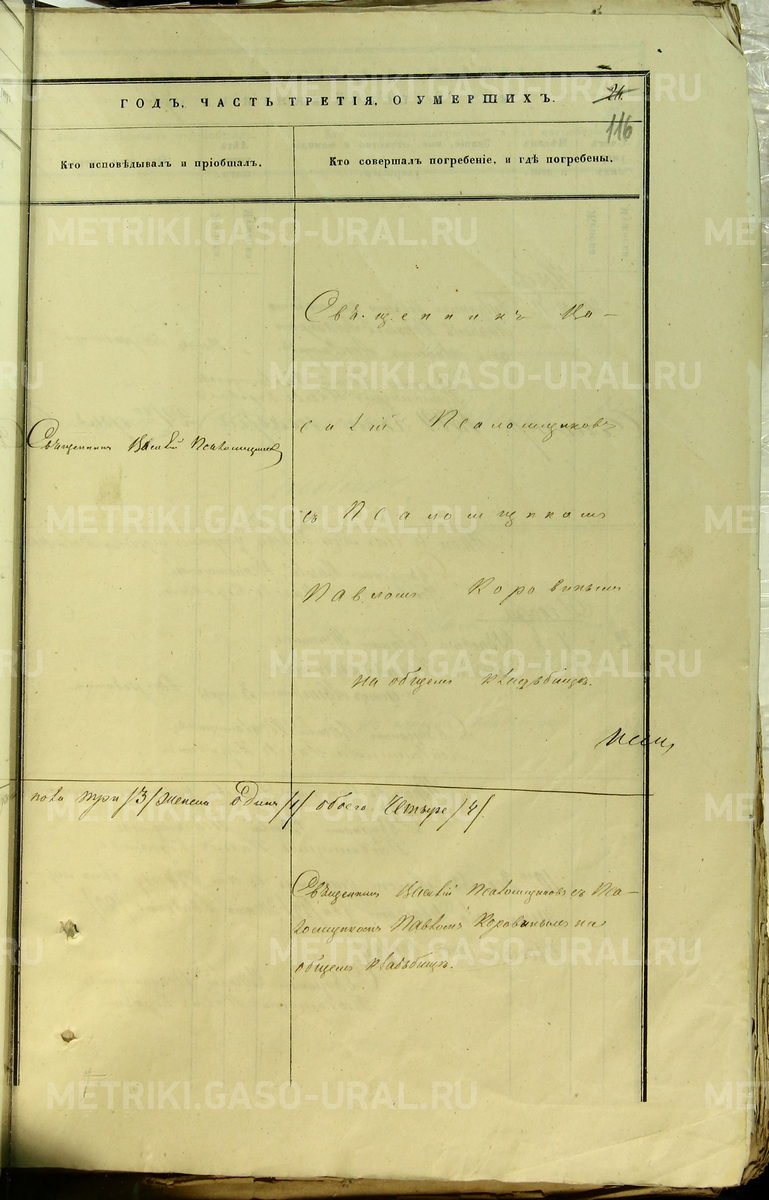 ГОДЪ, ЧАСТЬ ТРЕТІЯ, О УМЕРШИХЪ.
24.
116
Кто исповѣдывалъ и пріобщалъ.
Кто совершалъ погребеніе, и гдѣ погребены.
Священникъ Ва-
силій Псаломщиковъ
Священникъ Василій Псаломщиковъ
съ Псаломщикомъ
Павломъ Коровинымъ
на общемъ кладбищѣ.
пола три /3/ женска одинъ /1/ обоего четыре /4/.
Священникъ Василій Псаломщиковъ съ Пса-
ломщикомъ Павломъ Коровинымъ на
общемъ кладбищѣ.
METRIKI.GASO-URAL.RU